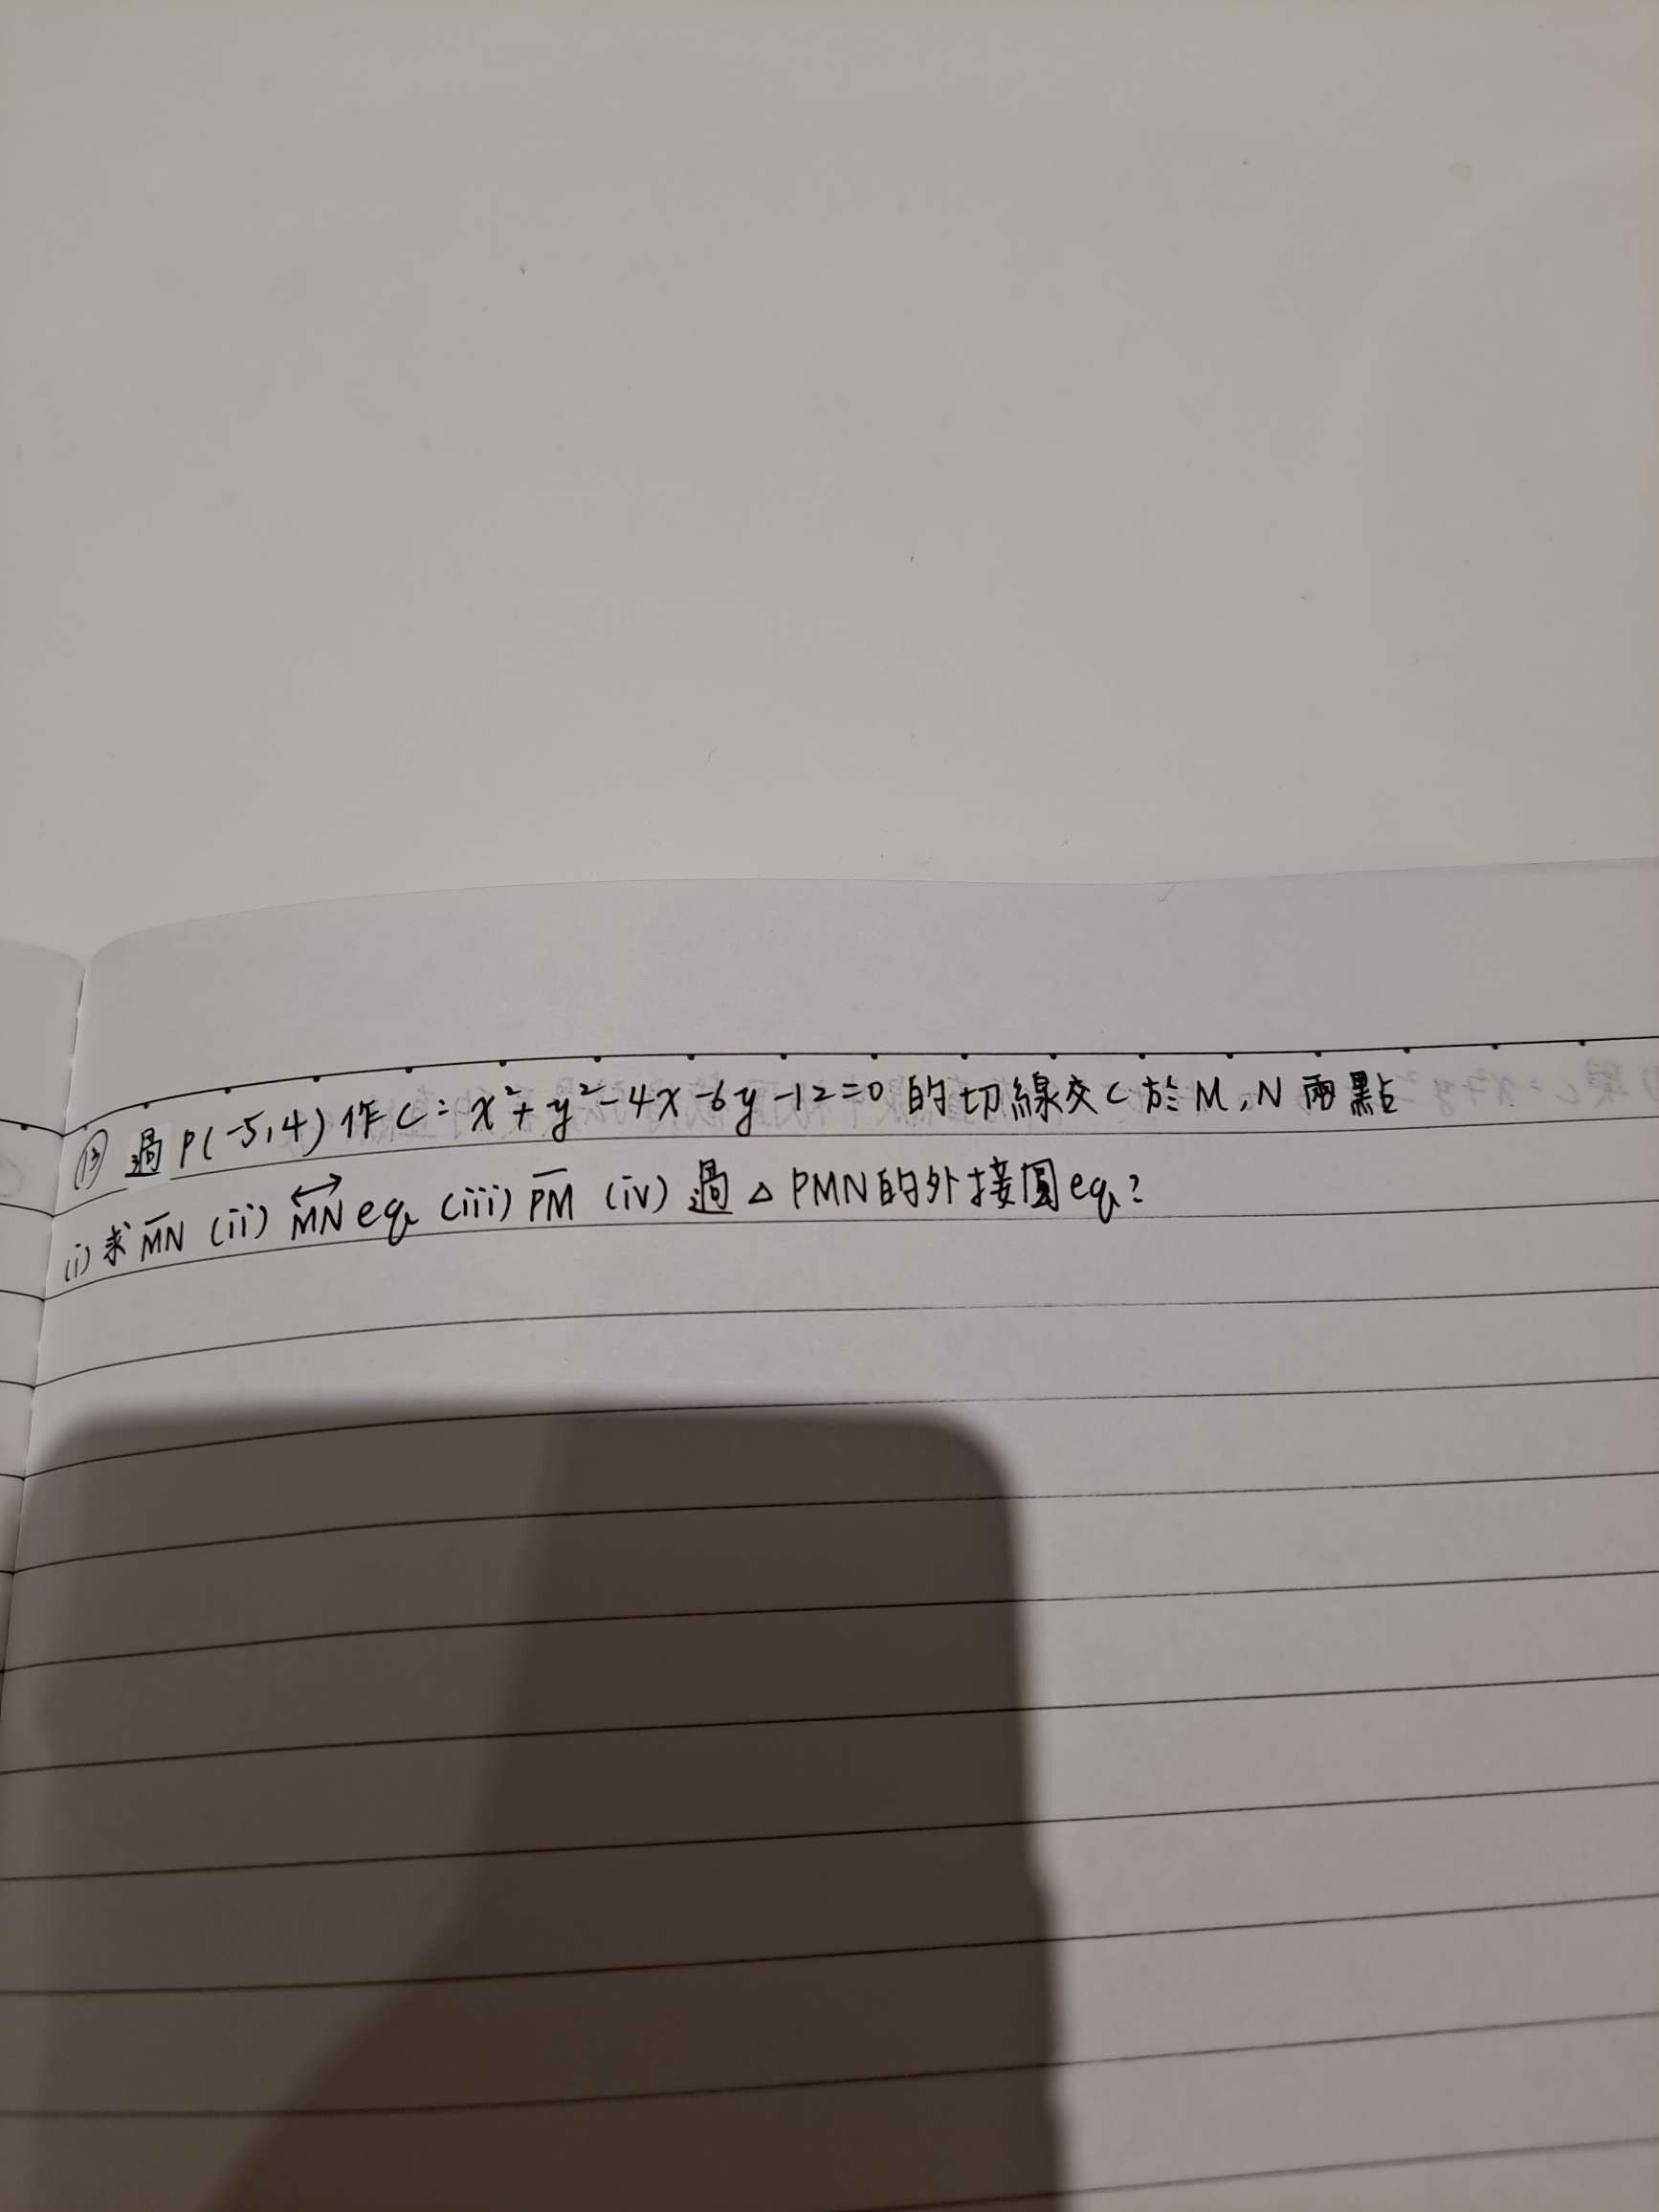 ⑬ 過P(-5,4)作C:x²+y²-4x-6y-12=0的切線交C於M,N兩點
(i)求M̅N̅ (ii) M͍N͍ eq (iii) P̅M̅ (iv) 過△PMN的外接圓eq?